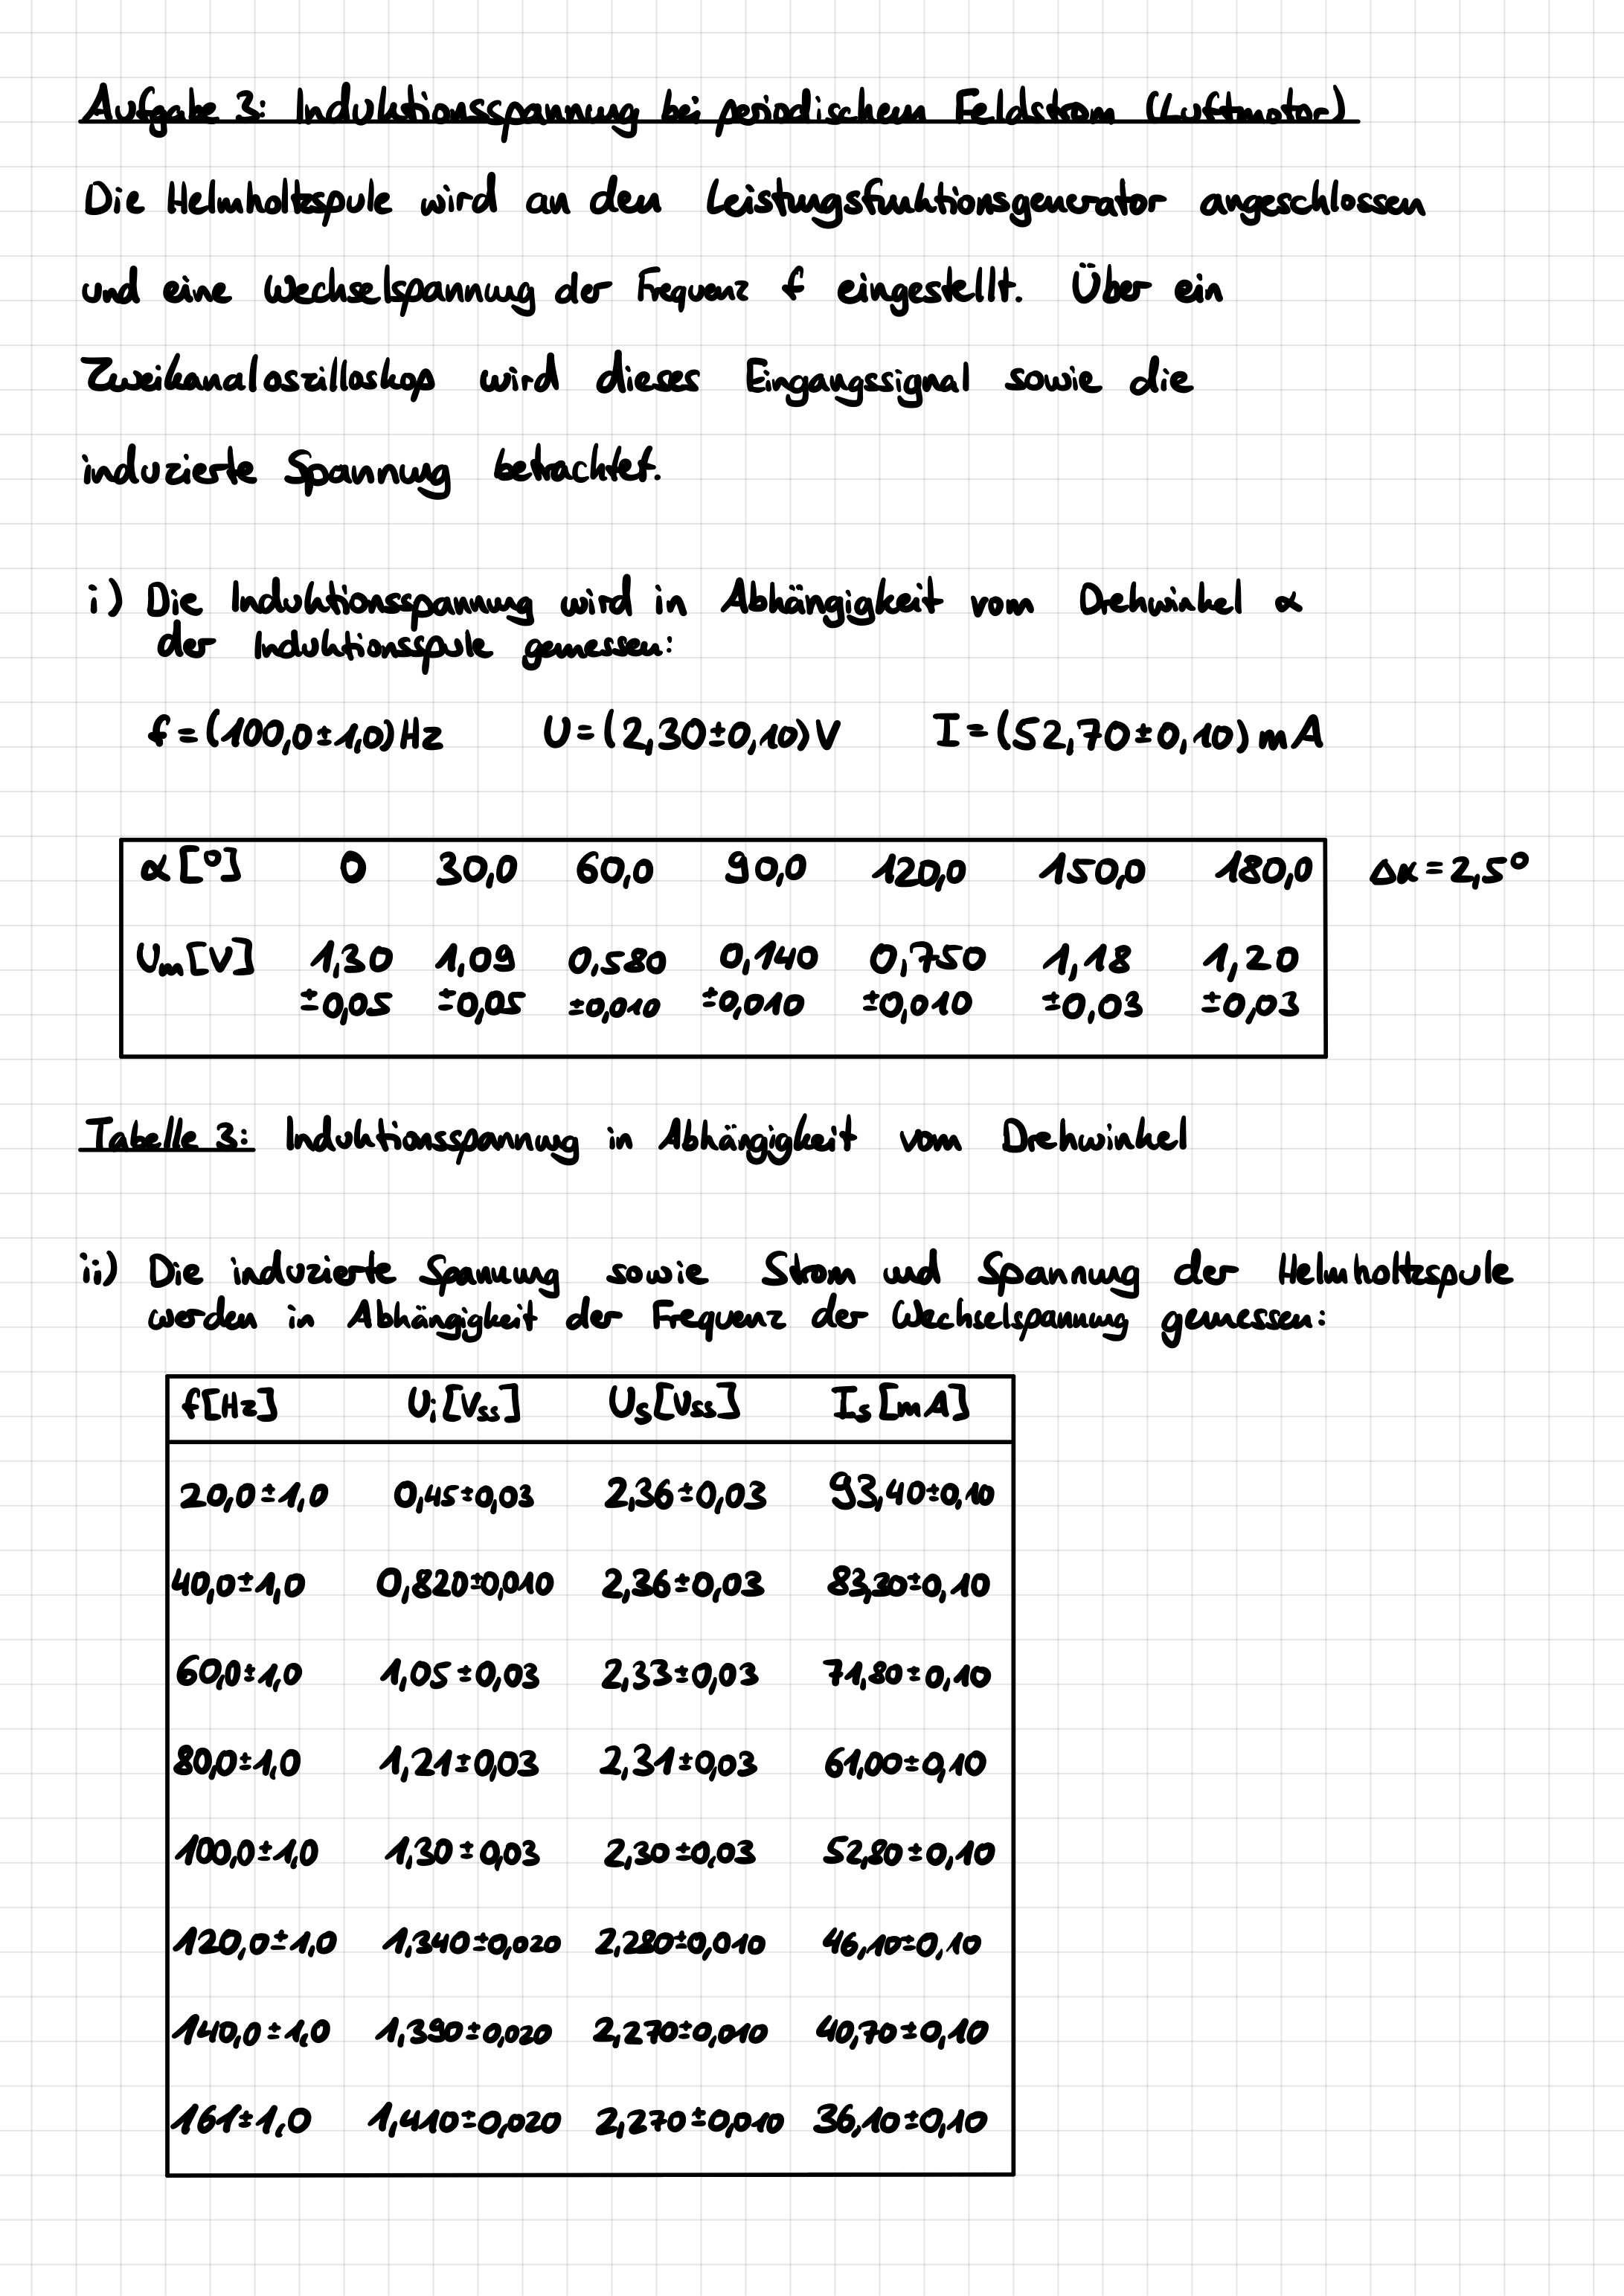 Aufgabe 3: Induktionsspannung bei periodischem Feldstrom (Luftmotor)
Die Helmholtzspule wird an den Leistungsfunktionsgenerator angeschlossen
und eine Wechselspannung der Frequenz f eingestellt. Über ein
Zweikanaloszilloskop wird dieses Eingangssignal sowie die
induzierte Spannung betrachtet.
i) Die Induktionsspannung wird in Abhängigkeit vom Drehwinkel α
der Induktionsspule gemessen:
f = (100,0±1,0)Hz U = (2,30±0,10)V I = (52,70±0,10)mA
α[°] 0 30,0 60,0 90,0 120,0 150,0 180,0 Δα = 2,5°
Um[V] 1,30 1,09 0,580 0,140 0,750 1,18 1,20
±0,05 ±0,05 ±0,010 ±0,010 ±0,010 ±0,03 ±0,03
Tabelle 3: Induktionsspannung in Abhängigkeit vom Drehwinkel
ii) Die induzierte Spannung sowie Strom und Spannung der Helmholtzspule
werden in Abhängigkeit der Frequenz der Wechselspannung gemessen:
f[Hz] Ui[Vss] Us[Vss] Is[mA]
20,0±1,0 0,45±0,03 2,36±0,03 93,40±0,10
40,0±1,0 0,820±0,010 2,36±0,03 83,30±0,10
60,0±1,0 1,05±0,03 2,33±0,03 71,80±0,10
80,0±1,0 1,21±0,03 2,31±0,03 61,00±0,10
100,0±1,0 1,30±0,03 2,30±0,03 52,80±0,10
120,0±1,0 1,340±0,020 2,280±0,010 46,10±0,10
140,0±1,0 1,390±0,020 2,270±0,010 40,70±0,10
161±1,0 1,410±0,020 2,270±0,010 36,10±0,10